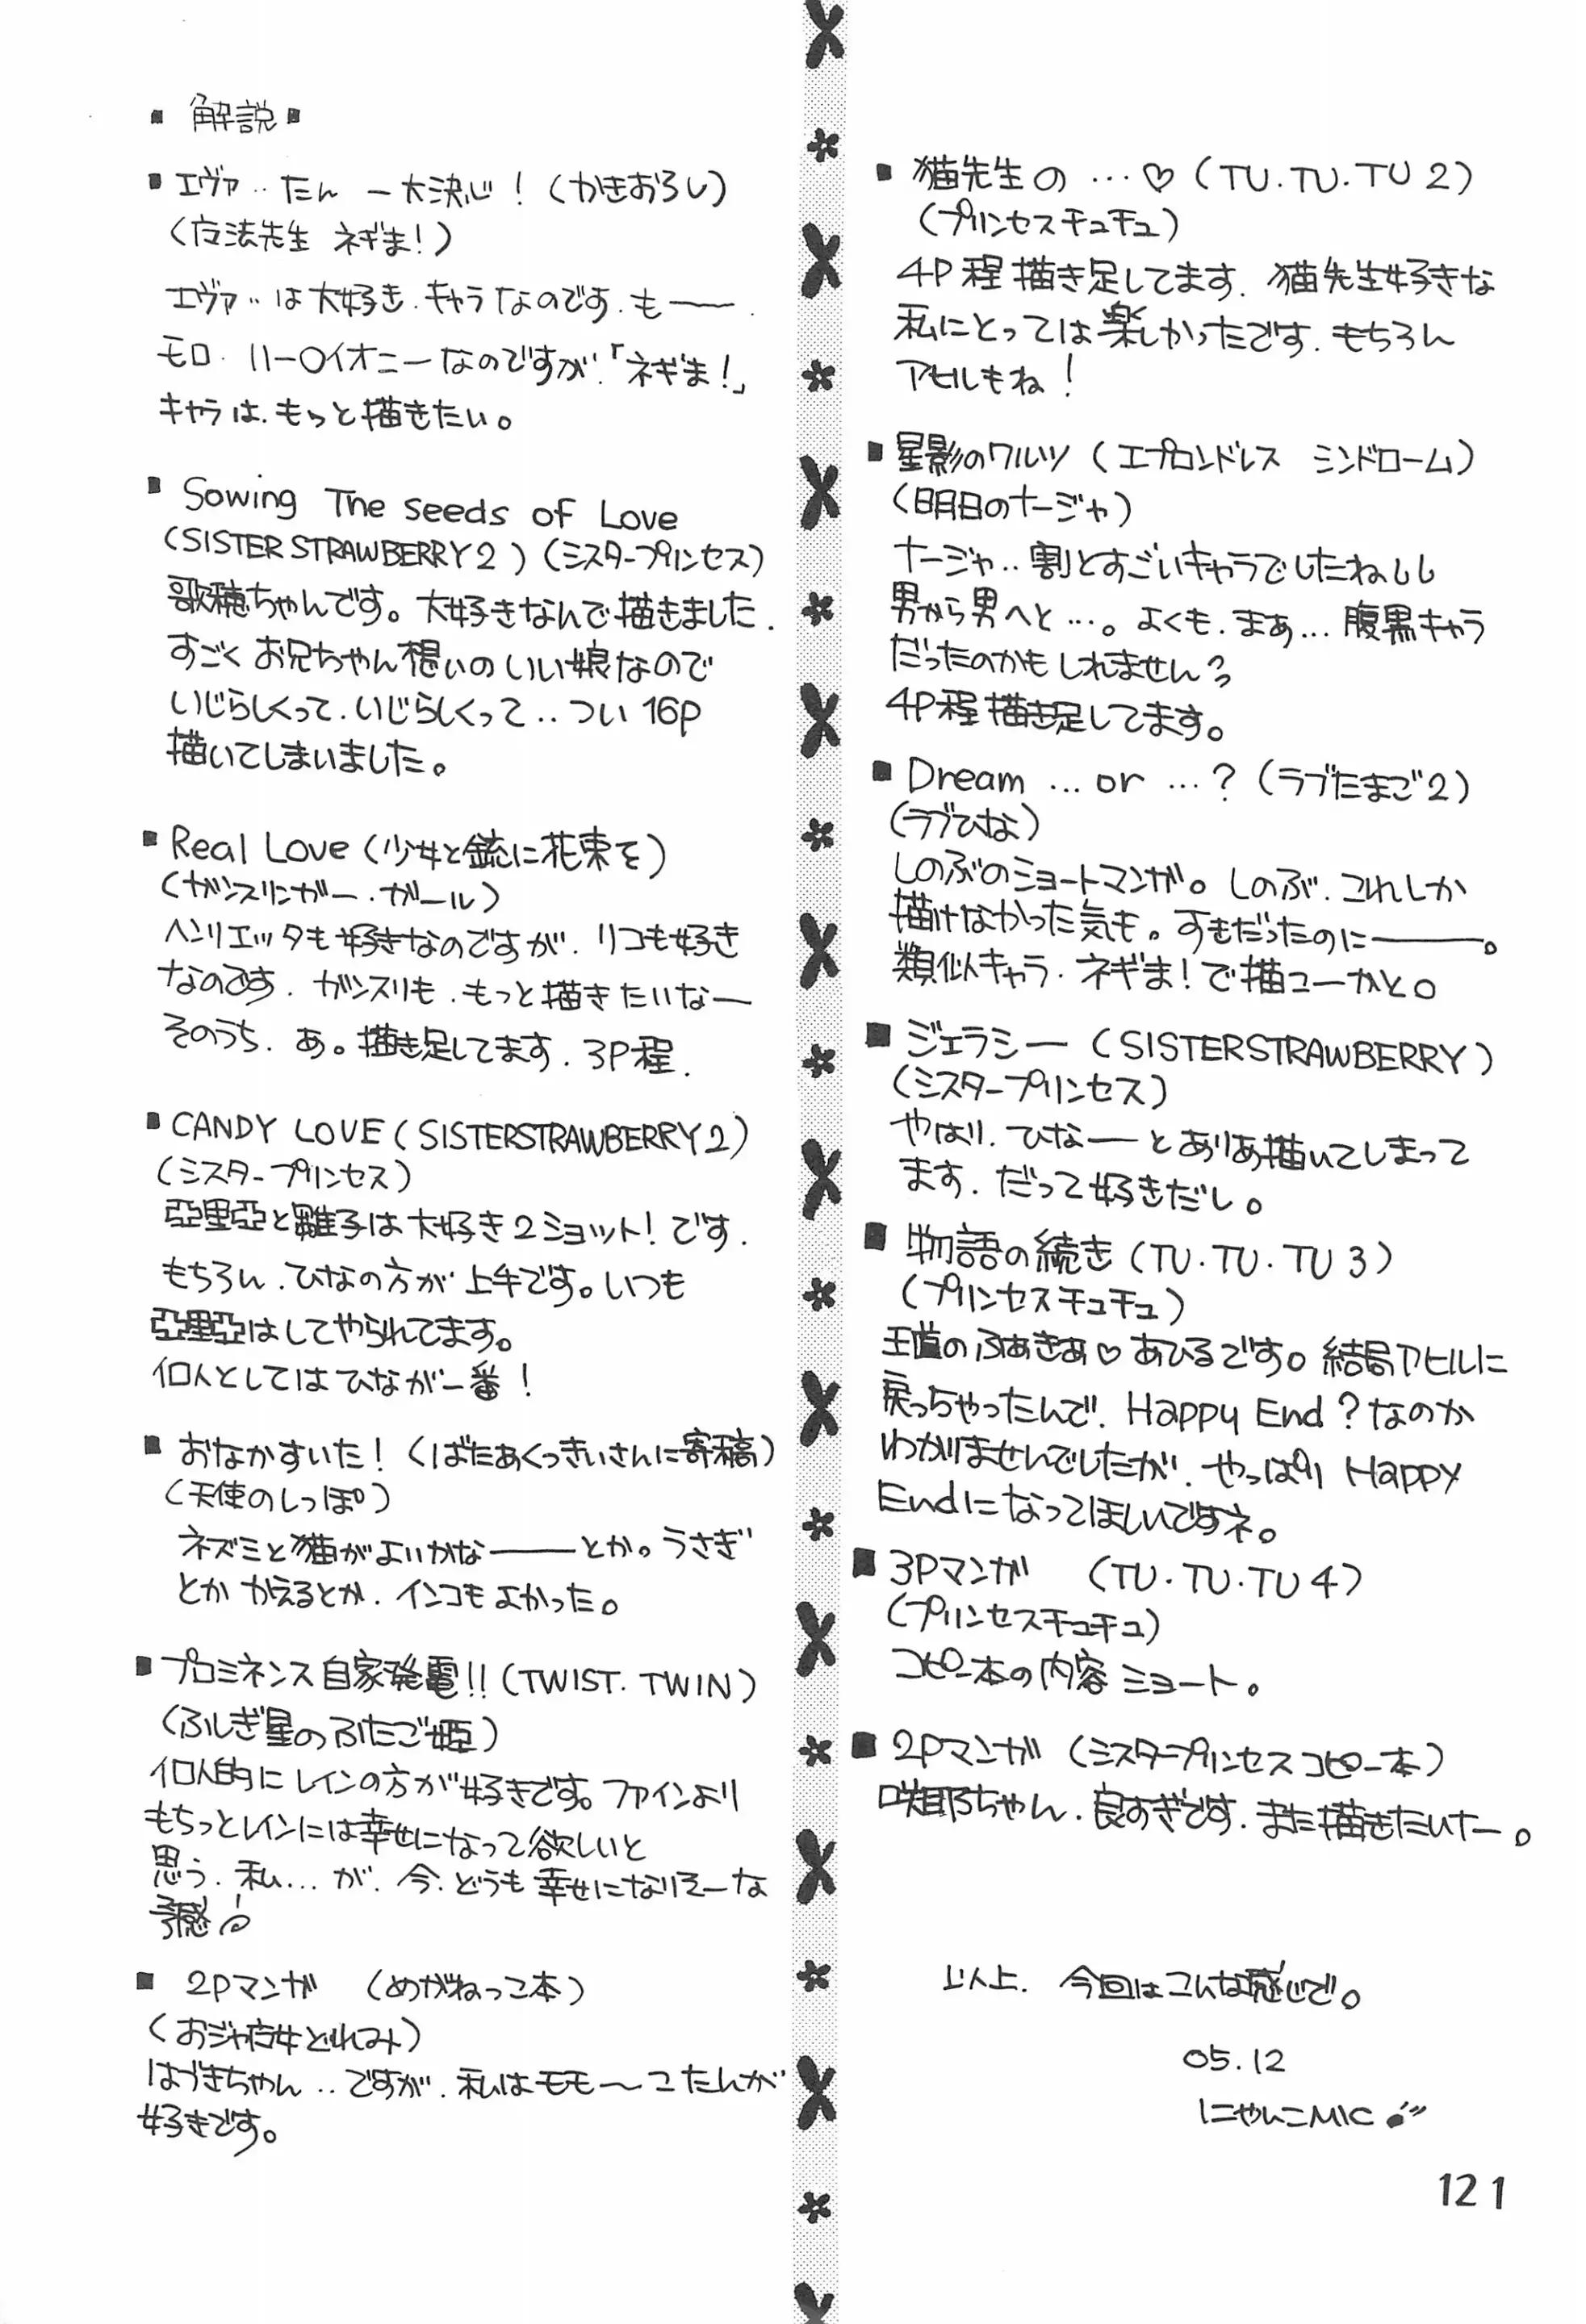 ■ 解説 ■
■ エヴァ‥たん 一大決心！（かきおろし）
（魔法先生 ネギま！）
エヴァ‥は大好き.キャラなのです.も――.
モロ.ハー〇イオニーなのですが.「ネギま！」
キャラは.もっと描きたい。
■ Sowing The seeds of Love
（SISTER STRAWBERRY 2）（シスタープリンセス）
歌穂ちゃんです。大好きなんで描きました.
すごくお兄ちゃん想いのいい娘なので
いじらしくって.いじらしくって‥つい16P
描いてしまいました。
■ Real Love（少女と銃に花束を）
（ガンスリンガー・ガール）
ヘンリエッタも好きなのですが.リコも好き
なのです.ガンスリも.もっと描きたいなー
そのうち.あ。描き足してます.3P程.
■ CANDY LOVE（SISTERSTRAWBERRY2）
（シスタープリンセス）
亞里亞と雛子は大好き2ショット！です.
もちろん.ひなの方が上手です。いつも
亞里亞はしてやられてます。
個人としてはひなが一番！
■ おなかすいた！（ばたあくっきいさんに寄稿）
（天使のしっぽ）
ネズミと猫がよいかな――とか。うさぎ
とかかえるとか.インコもよかった。
■ プロミネンス自家発電!!（TWIST. TWIN）
（ふしぎ星のふたご姫）
個人的にレインの方が好きです。ファインより
もちっとレインには幸せになって欲しいと
思う.私…が.今.どうも幸せになりそーな
予感
■ 2Pマンガ （めがねっこ本）
（おジャ魔女どれみ）
はづきちゃん‥ですが.私はモモ〜こたんが
好きです。
■ 猫先生の …♡（TU.TU.TU 2）
（プリンセスチュチュ）
4P程描き足してます.猫先生好きな
私にとっては楽しかったです.もちろん
アヒルもね！
■ 星影のワルツ（エプロンドレス シンドローム）
（明日のナージャ）
ナージャ‥割とすごいキャラでしたねしし
男から男へと…。よくも.まぁ…腹黒キャラ
だったのかもしれません?
4P程描き足してます。
■ Dream …or …？（ラブたまご2）
（ラブひな）
しのぶのショートマンガ。しのぶ.これしか
描けなかった気も。すきだったのに――。
類似キャラ.ネギま！で描コーかと。
■ ジェラシー（SISTERSTRAWBERRY）
（シスタープリンセス）
やはり.ひなーとありあ描いてしまって
ます.だって好きだし。
■ 物語の続き（TU.TU.TU 3）
（プリンセスチュチュ）
王道のふぁきあ♡あひるです。結局アヒルに
戻っちゃったんで.Happy End？なのか
わかりませんでしたが.やっぱり Happy
Endになってほしいですネ。
■ 3Pマンガ （TU.TU.TU 4）
（プリンセスチュチュ）
コピー本の内容ショート。
■ 2Pマンガ（シスタープリンセスコピー本）
咲耶ちゃん.良すぎです.また描きたいナー。
以上.今回はこんな感じで。
05.12
にゃんこMIC
121